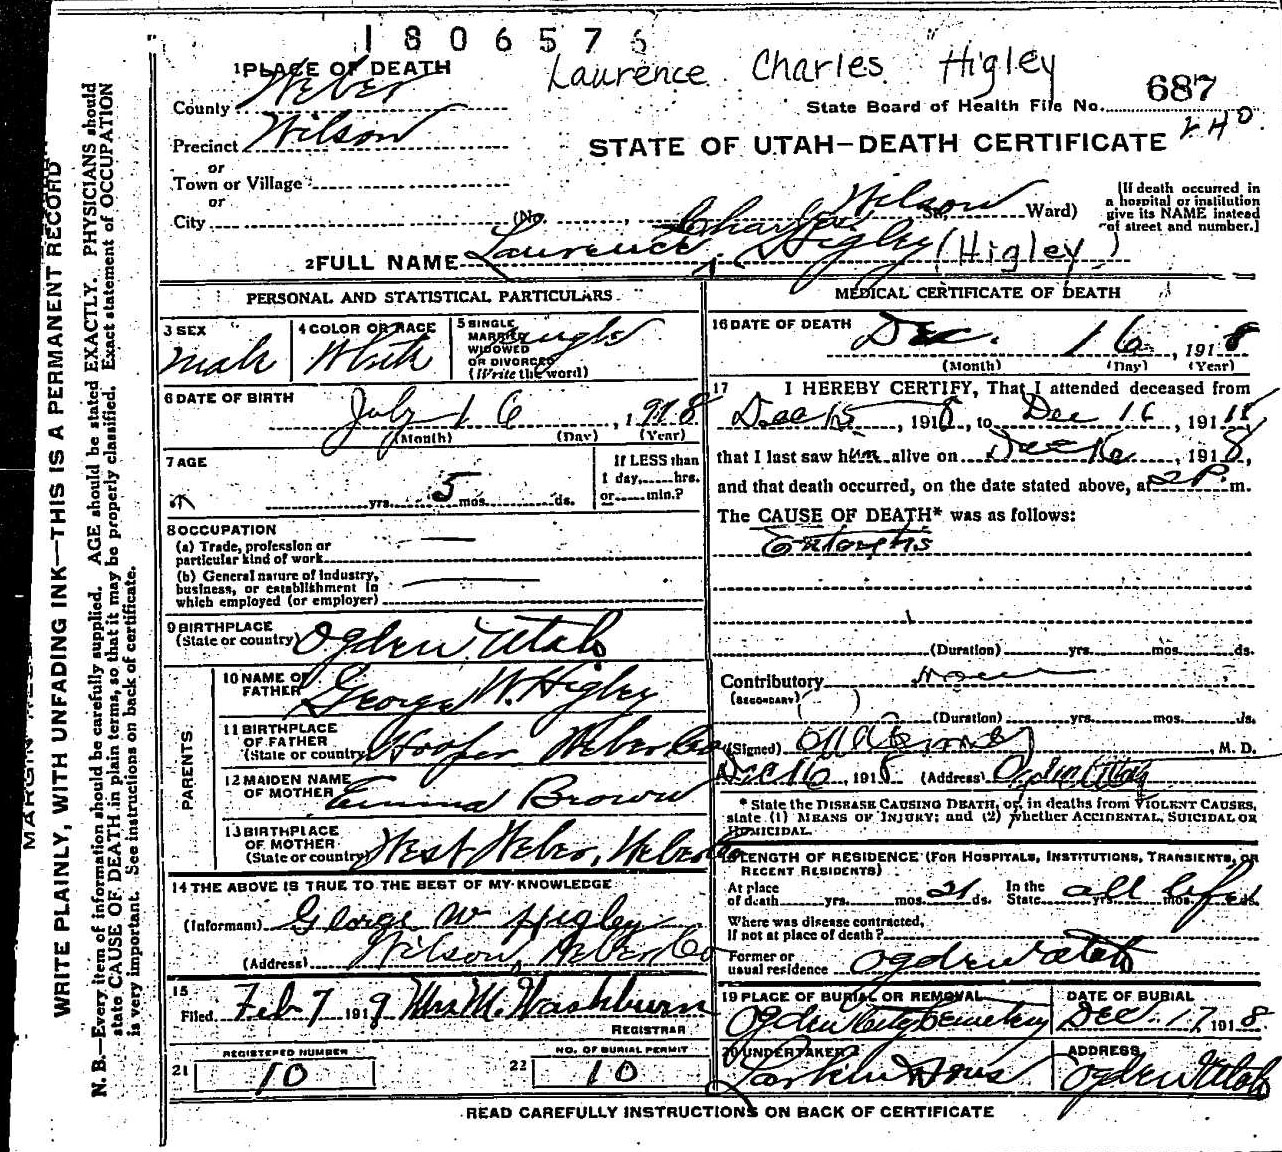 1806576
Laurence Charles Higley
1 PLACE OF DEATH
County Weber
State Board of Health File No. 687
240
Precinct Wilson
STATE OF UTAH—DEATH CERTIFICATE
or
Town or Village
or
City (No. , Wilson St. Ward)
[If death occurred in
a hospital or institution
give its NAME instead
of street and number.]
Charles
2 FULL NAME Laurence Higley (Higley)
PERSONAL AND STATISTICAL PARTICULARS
3 SEX
Male
4 COLOR OR RACE
White
5 SINGLE
MARRIED
WIDOWED
OR DIVORCED
(Write the word)
Single
6 DATE OF BIRTH
July 16, 1918
(Month) (Day) (Year)
7 AGE
yrs. 5 mos. ds.
If LESS than
1 day, hrs.
or min.?
8 OCCUPATION
(a) Trade, profession or
particular kind of work
(b) General nature of industry,
business, or establishment in
which employed (or employer)
9 BIRTHPLACE
(State or country) Ogden Utah
PARENTS
10 NAME OF
FATHER George W. Higley
11 BIRTHPLACE
OF FATHER
(State or country) Hooper Weber Co
12 MAIDEN NAME
OF MOTHER Emma Brown
13 BIRTHPLACE
OF MOTHER
(State or country) West Weber, Weber Co
14 THE ABOVE IS TRUE TO THE BEST OF MY KNOWLEDGE
(Informant) George W Higley
(Address) Wilson, Weber Co
15
Filed Feb 7 1919 Mrs M. Washburn
REGISTRAR
21 REGISTERED NUMBER
10
22 NO. OF BURIAL PERMIT
10
MEDICAL CERTIFICATE OF DEATH
16 DATE OF DEATH
Dec. 16, 1918
(Month) (Day) (Year)
17 I HEREBY CERTIFY, That I attended deceased from
Dec 15, 1918, to Dec 16, 1918
that I last saw him alive on Dec 16, 1918,
and that death occurred, on the date stated above, at 2 P. m.
The CAUSE OF DEATH* was as follows:
(Duration) yrs. mos. ds.
Contributory None
(SECONDARY)
(Duration) yrs. mos. ds.
(Signed) M. D.
Dec 16 1918 (Address) Ogden Utah
* State the DISEASE CAUSING DEATH, or, in deaths from VIOLENT CAUSES,
state (1) MEANS OF INJURY; and (2) whether ACCIDENTAL, SUICIDAL OR
HOMICIDAL.
LENGTH OF RESIDENCE (FOR HOSPITALS, INSTITUTIONS, TRANSIENTS, OR
RECENT RESIDENTS)
At place
of death yrs. mos. 21 ds.
In the
State yrs. mos. ds. all life
Where was disease contracted,
If not at place of death?
Former or
usual residence Ogden Utah
19 PLACE OF BURIAL OR REMOVAL
Ogden City Cemetery
DATE OF BURIAL
Dec. 17 1918
20 UNDERTAKER
Larkin & Sons
ADDRESS
Ogden Utah
READ CAREFULLY INSTRUCTIONS ON BACK OF CERTIFICATE
WRITE PLAINLY, WITH UNFADING INK—THIS IS A PERMANENT RECORD
N. B.—Every item of information should be carefully supplied. AGE should be stated EXACTLY. PHYSICIANS should
state CAUSE OF DEATH in plain terms, so that it may be properly classified. Exact statement of OCCUPATION
is very important. See instructions on back of certificate.